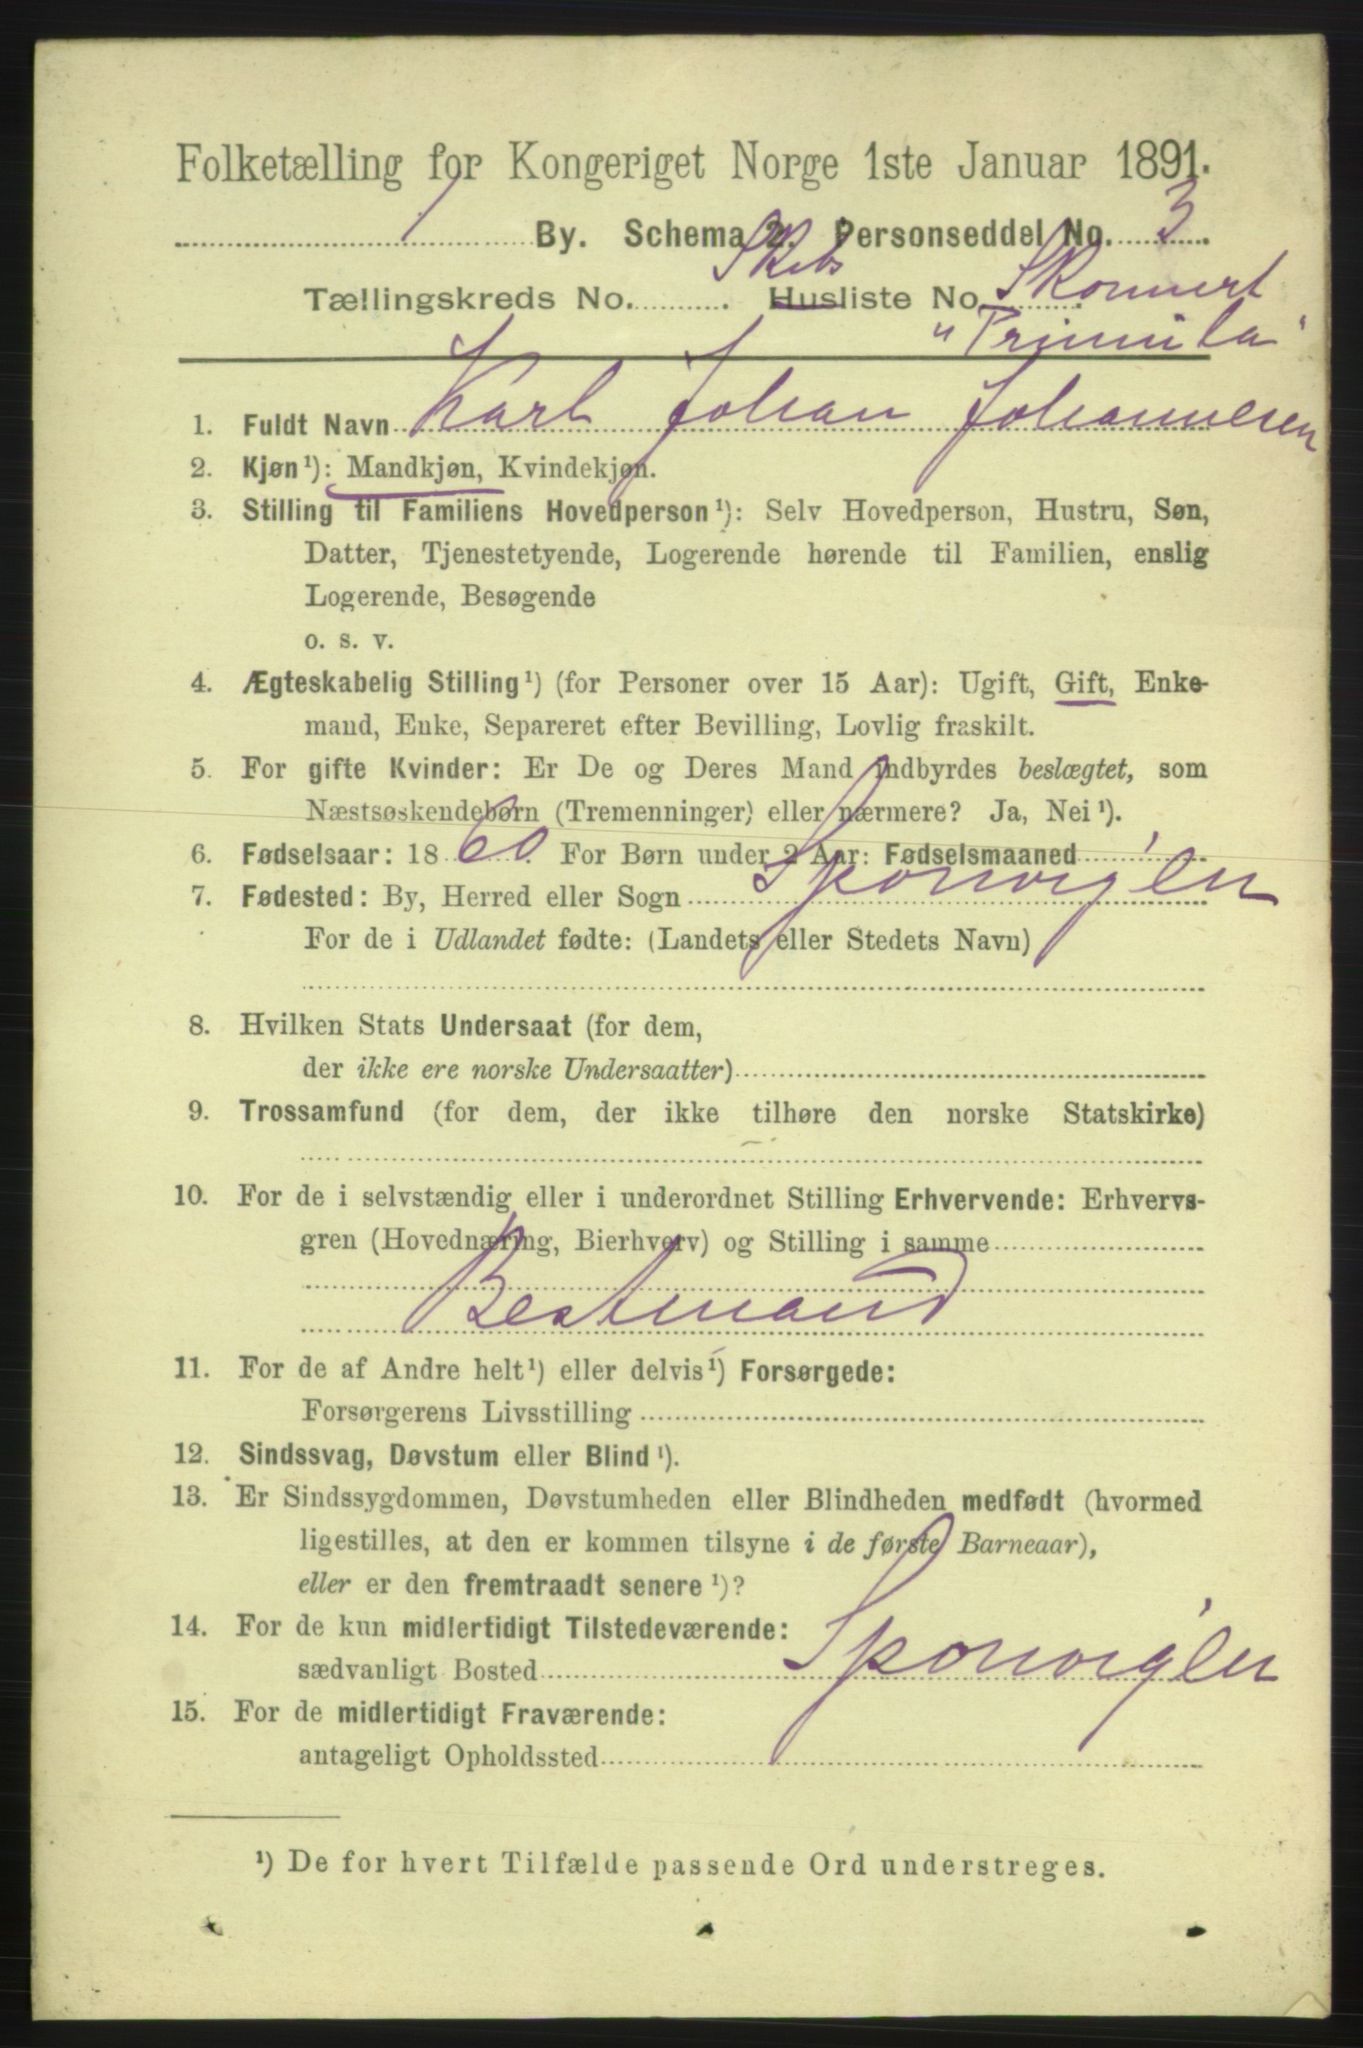 Folketælling for Kongeriget Norge 1ste Januar 1891.
1 By. Schema 2. Personseddel No. 3
Tællingskreds No. . Skibs Husliste No. Skonnert
"Primula"
1. Fuldt Navn Karl Johan Johannesen
2. Kjøn ¹): Mandkjøn, Kvindekjøn.
3. Stilling til Familiens Hovedperson ¹): Selv Hovedperson, Hustru, Søn,
Datter, Tjenestetyende, Logerende hørende til Familien, enslig
Logerende, Besøgende
o. s. v.
4. Ægteskabelig Stilling ¹) (for Personer over 15 Aar): Ugift, Gift, Enke-
mand, Enke, Separeret efter Bevilling, Lovlig fraskilt.
5. For gifte Kvinder: Er De og Deres Mand indbyrdes beslægtet, som
Næstsøskendebørn (Tremenninger) eller nærmere? Ja, Nei ¹).
6. Fødselsaar: 1860. For Børn under 2 Aar: Fødselsmaaned
7. Fødested: By, Herred eller Sogn Spornvigen
For de i Udlandet fødte: (Landets eller Stedets Navn)
8. Hvilken Stats Undersaat (for dem,
der ikke ere norske Undersaatter)
9. Trossamfund (for dem, der ikke tilhøre den norske Statskirke)
10. For de i selvstændig eller i underordnet Stilling Erhvervende: Erhvervs-
gren (Hovednæring, Bierhverv) og Stilling i samme
Bestmand
11. For de af Andre helt ¹) eller delvis ¹) Forsørgede:
Forsørgerens Livsstilling
12. Sindssvag, Døvstum eller Blind ¹).
13. Er Sindssygdommen, Døvstumheden eller Blindheden medfødt (hvormed
ligestilles, at den er kommen tilsyne i de første Barneaar),
eller er den fremtraadt senere ¹)?
14. For de kun midlertidigt Tilstedeværende:
sædvanligt Bosted Spornvigen
15. For de midlertidigt Fraværende:
antageligt Opholdssted
¹) De for hvert Tilfælde passende Ord understreges.